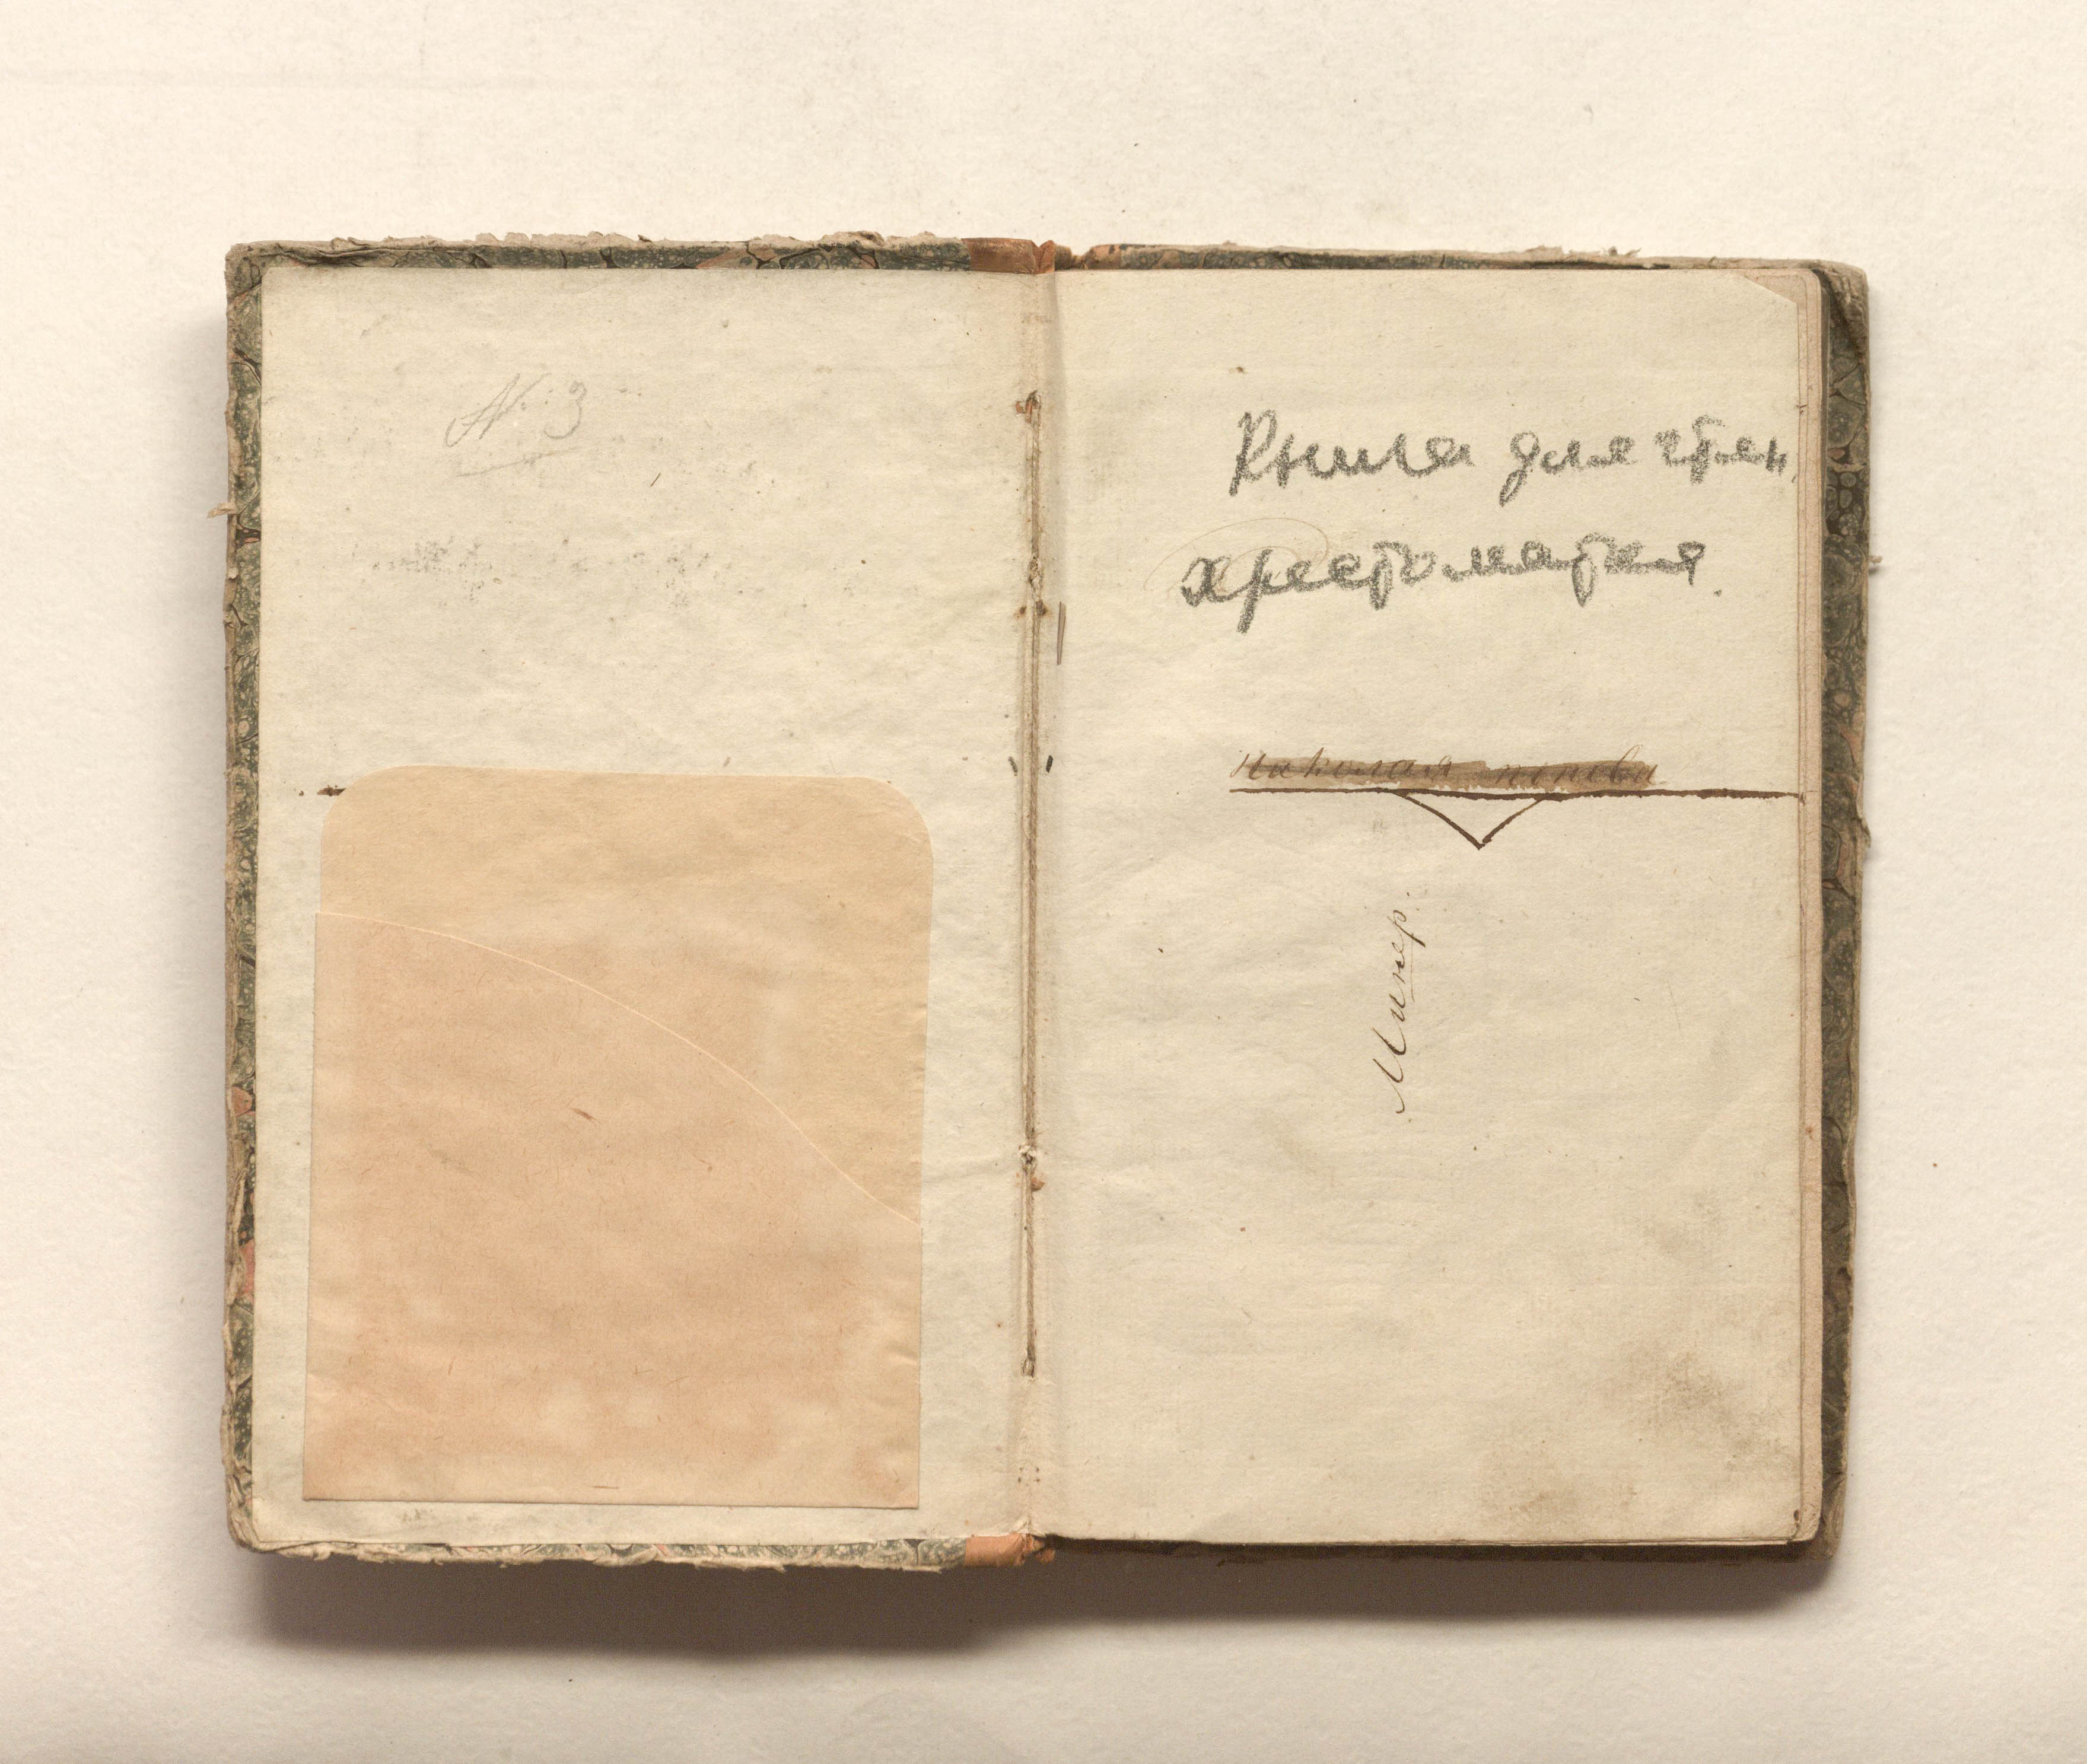 № 3
Книга для чтен.
хрестоматия
Николая Попова
Минер.